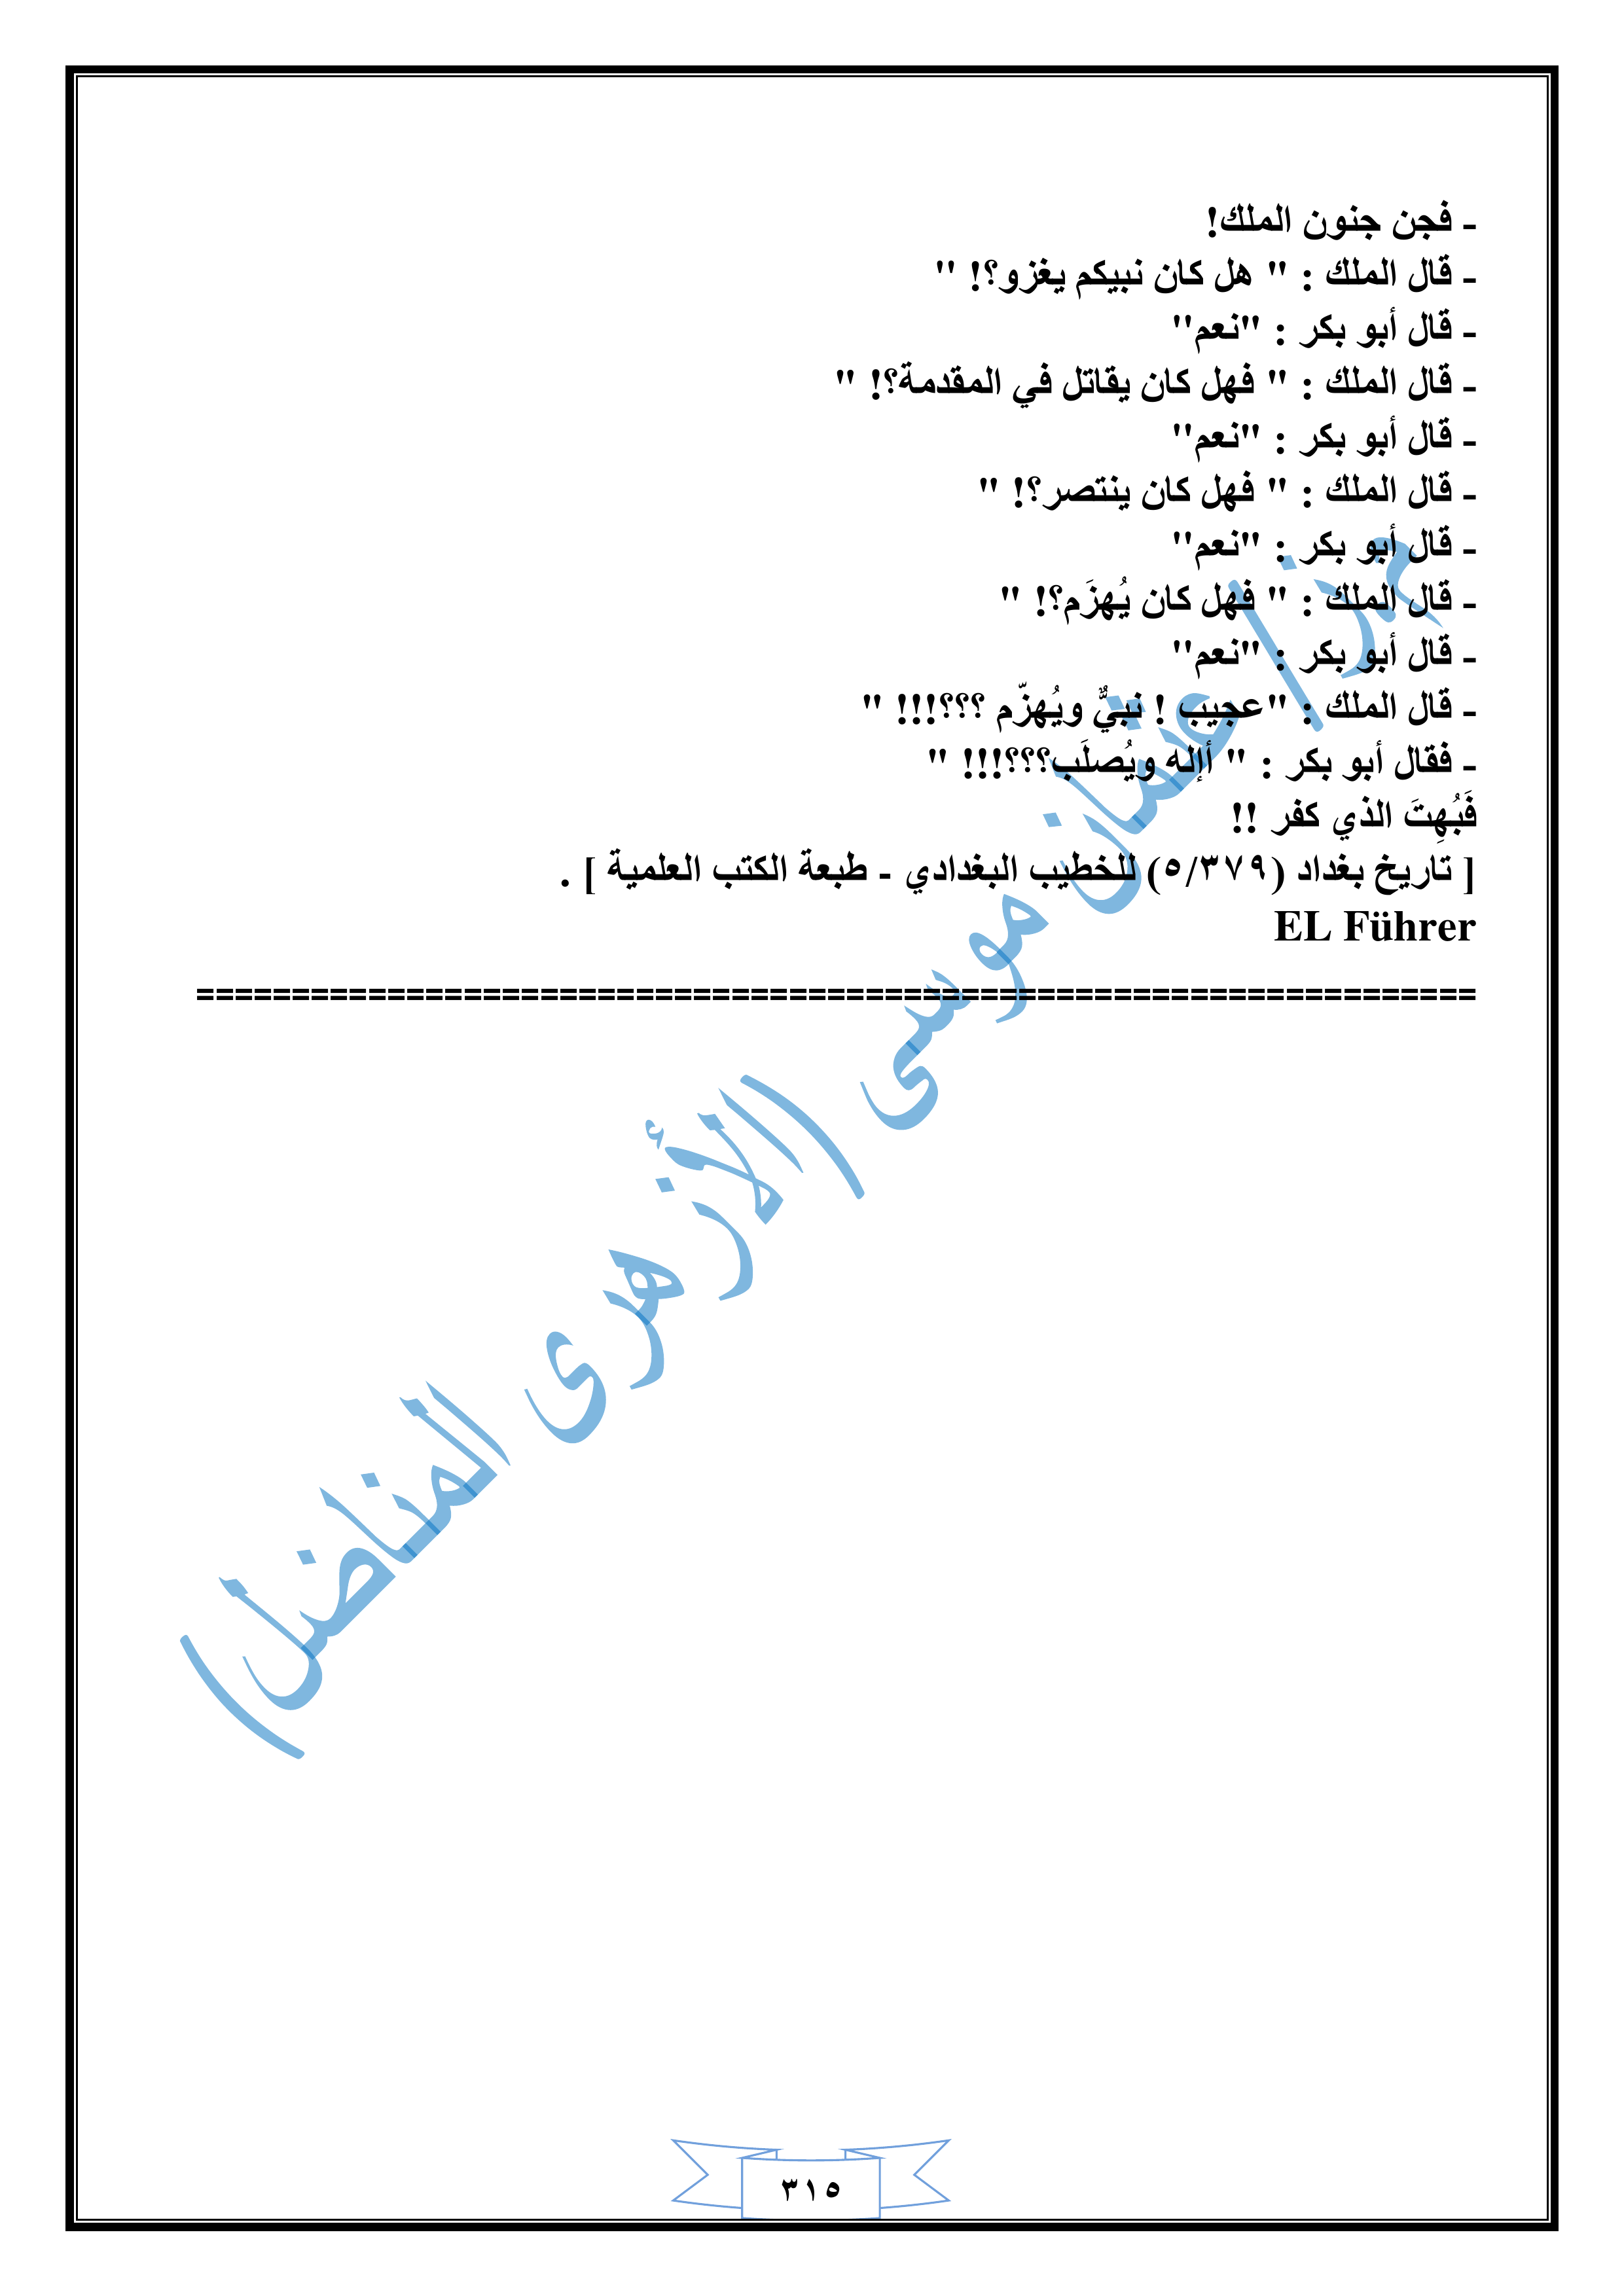 - فجن جنون الملك!
- قال الملك : " هل كان نبيكم يغزو؟! "
- قال أبو بكر : "نعم"
- قال الملك : " فهل كان يقاتل في المقدمة؟! "
- قال أبو بكر : "نعم"
- قال الملك : " فهل كان ينتصر؟! "
- قال أبو بكر : "نعم"
- قال الملك : " فهل كان يُهزَم؟! "
- قال أبو بكر : "نعم"
- قال الملك : "عجيب ! نبيٌّ ويُهزّم ؟؟؟!!! "
- فقال أبو بكر : " أإله ويُصلَب؟؟؟!!! "
فَبُهِتَ الذي كفر !!
[ تاريخ بغداد (٥/٣٧٩) للخطيب البغدادي - طبعة الكتب العلمية ] .
EL Führer
===================================================================
عثمان موسى (الأزهرى المناضل)
٣١٥